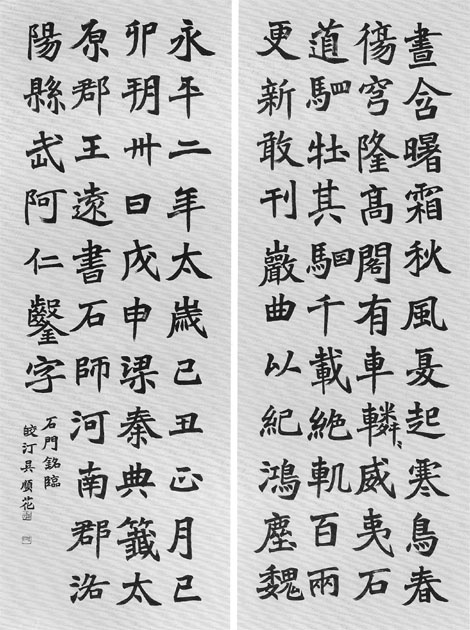 晝含曙霜秋風夏起寒鳥春
傷穹隆高閣有車轔〻威夷石
道駟牡其駰千載絕軌百兩
更新敢刊巖曲以紀鴻塵魏
永平二年太歲己丑正月己
卯朔卅日戊申梁秦典籤太
原郡王遠書石師河南郡洛
陽縣武阿仁鑿字
石門銘臨
皎汀具順花